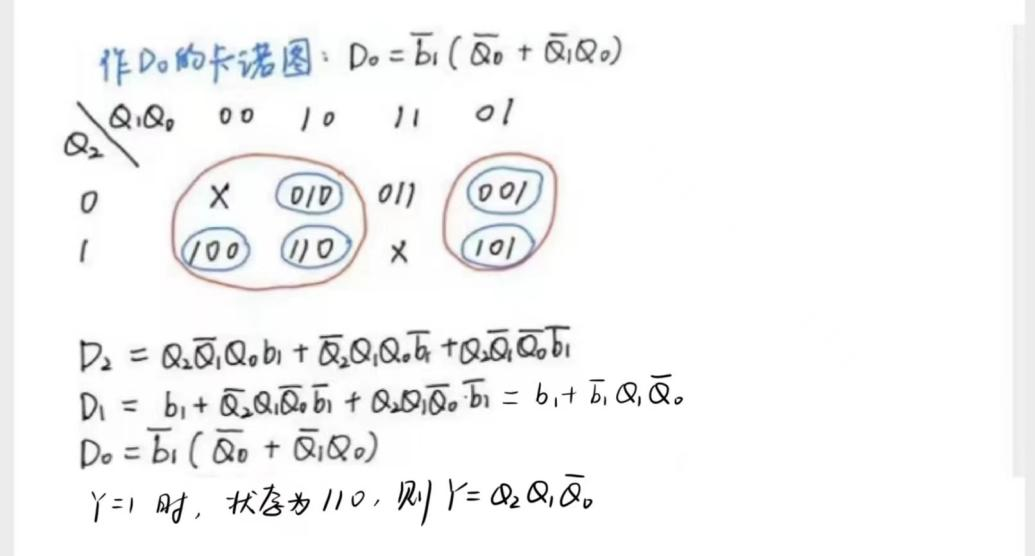 作D₀的卡诺图: D₀ = b̅₁ ( Q̅₀ + Q̅₁Q₀ )
Q₂ \ Q₁Q₀ 00 10 11 01
0 X 010 011 001
1 100 110 X 101
D₂ = Q₂Q̅₁Q₀b₁ + Q̅₂Q₁Q₀b̅₁ + Q₂Q̅₁Q̅₀b̅₁
D₁ = b₁ + Q̅₂Q₁Q̅₀b̅₁ + Q₂Q₁Q̅₀·b̅₁ = b₁ + b̅₁Q₁Q̅₀
D₀ = b̅₁ ( Q̅₀ + Q̅₁Q₀ )
Y=1 时, 状态为110, 则 Y = Q₂Q₁Q̅₀